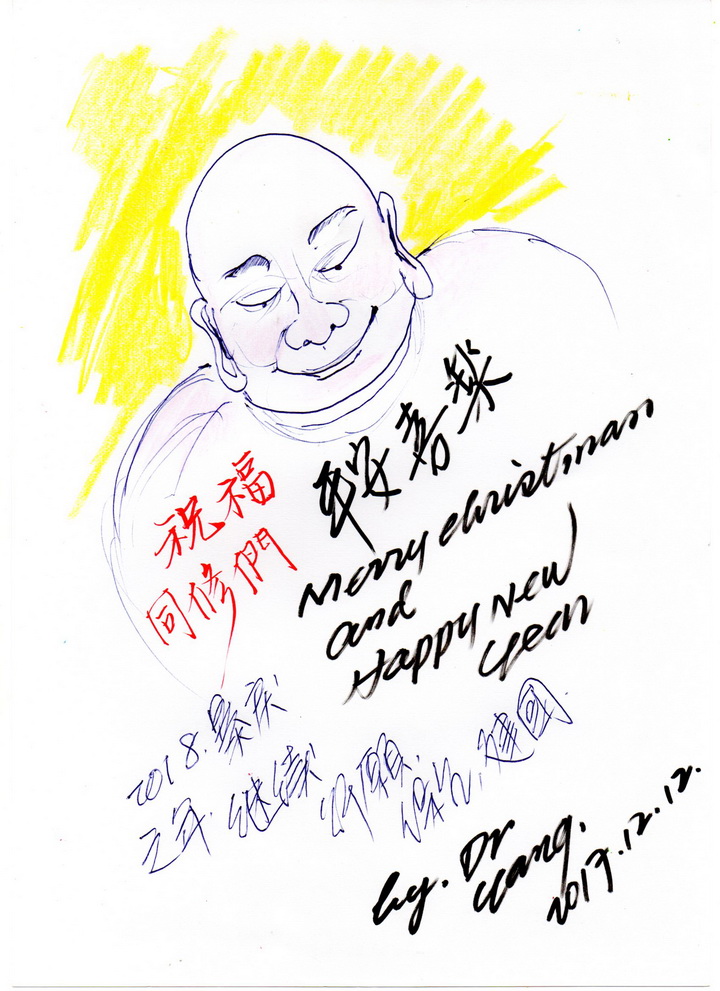 祝福
同修們
喜樂
Merry christmas
and
Happy New
year
2018.
之年.继续 行願. 建國
by. Dr
Yang.
2017.12.12.